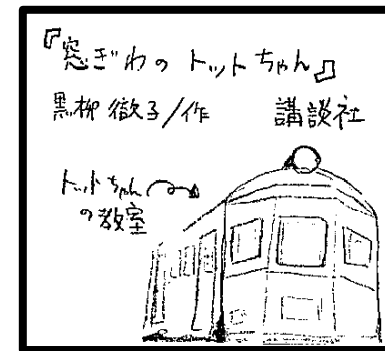 『窓ぎわのトットちゃん』
黒柳 徹子/作 講談社
トットちゃん
の教室